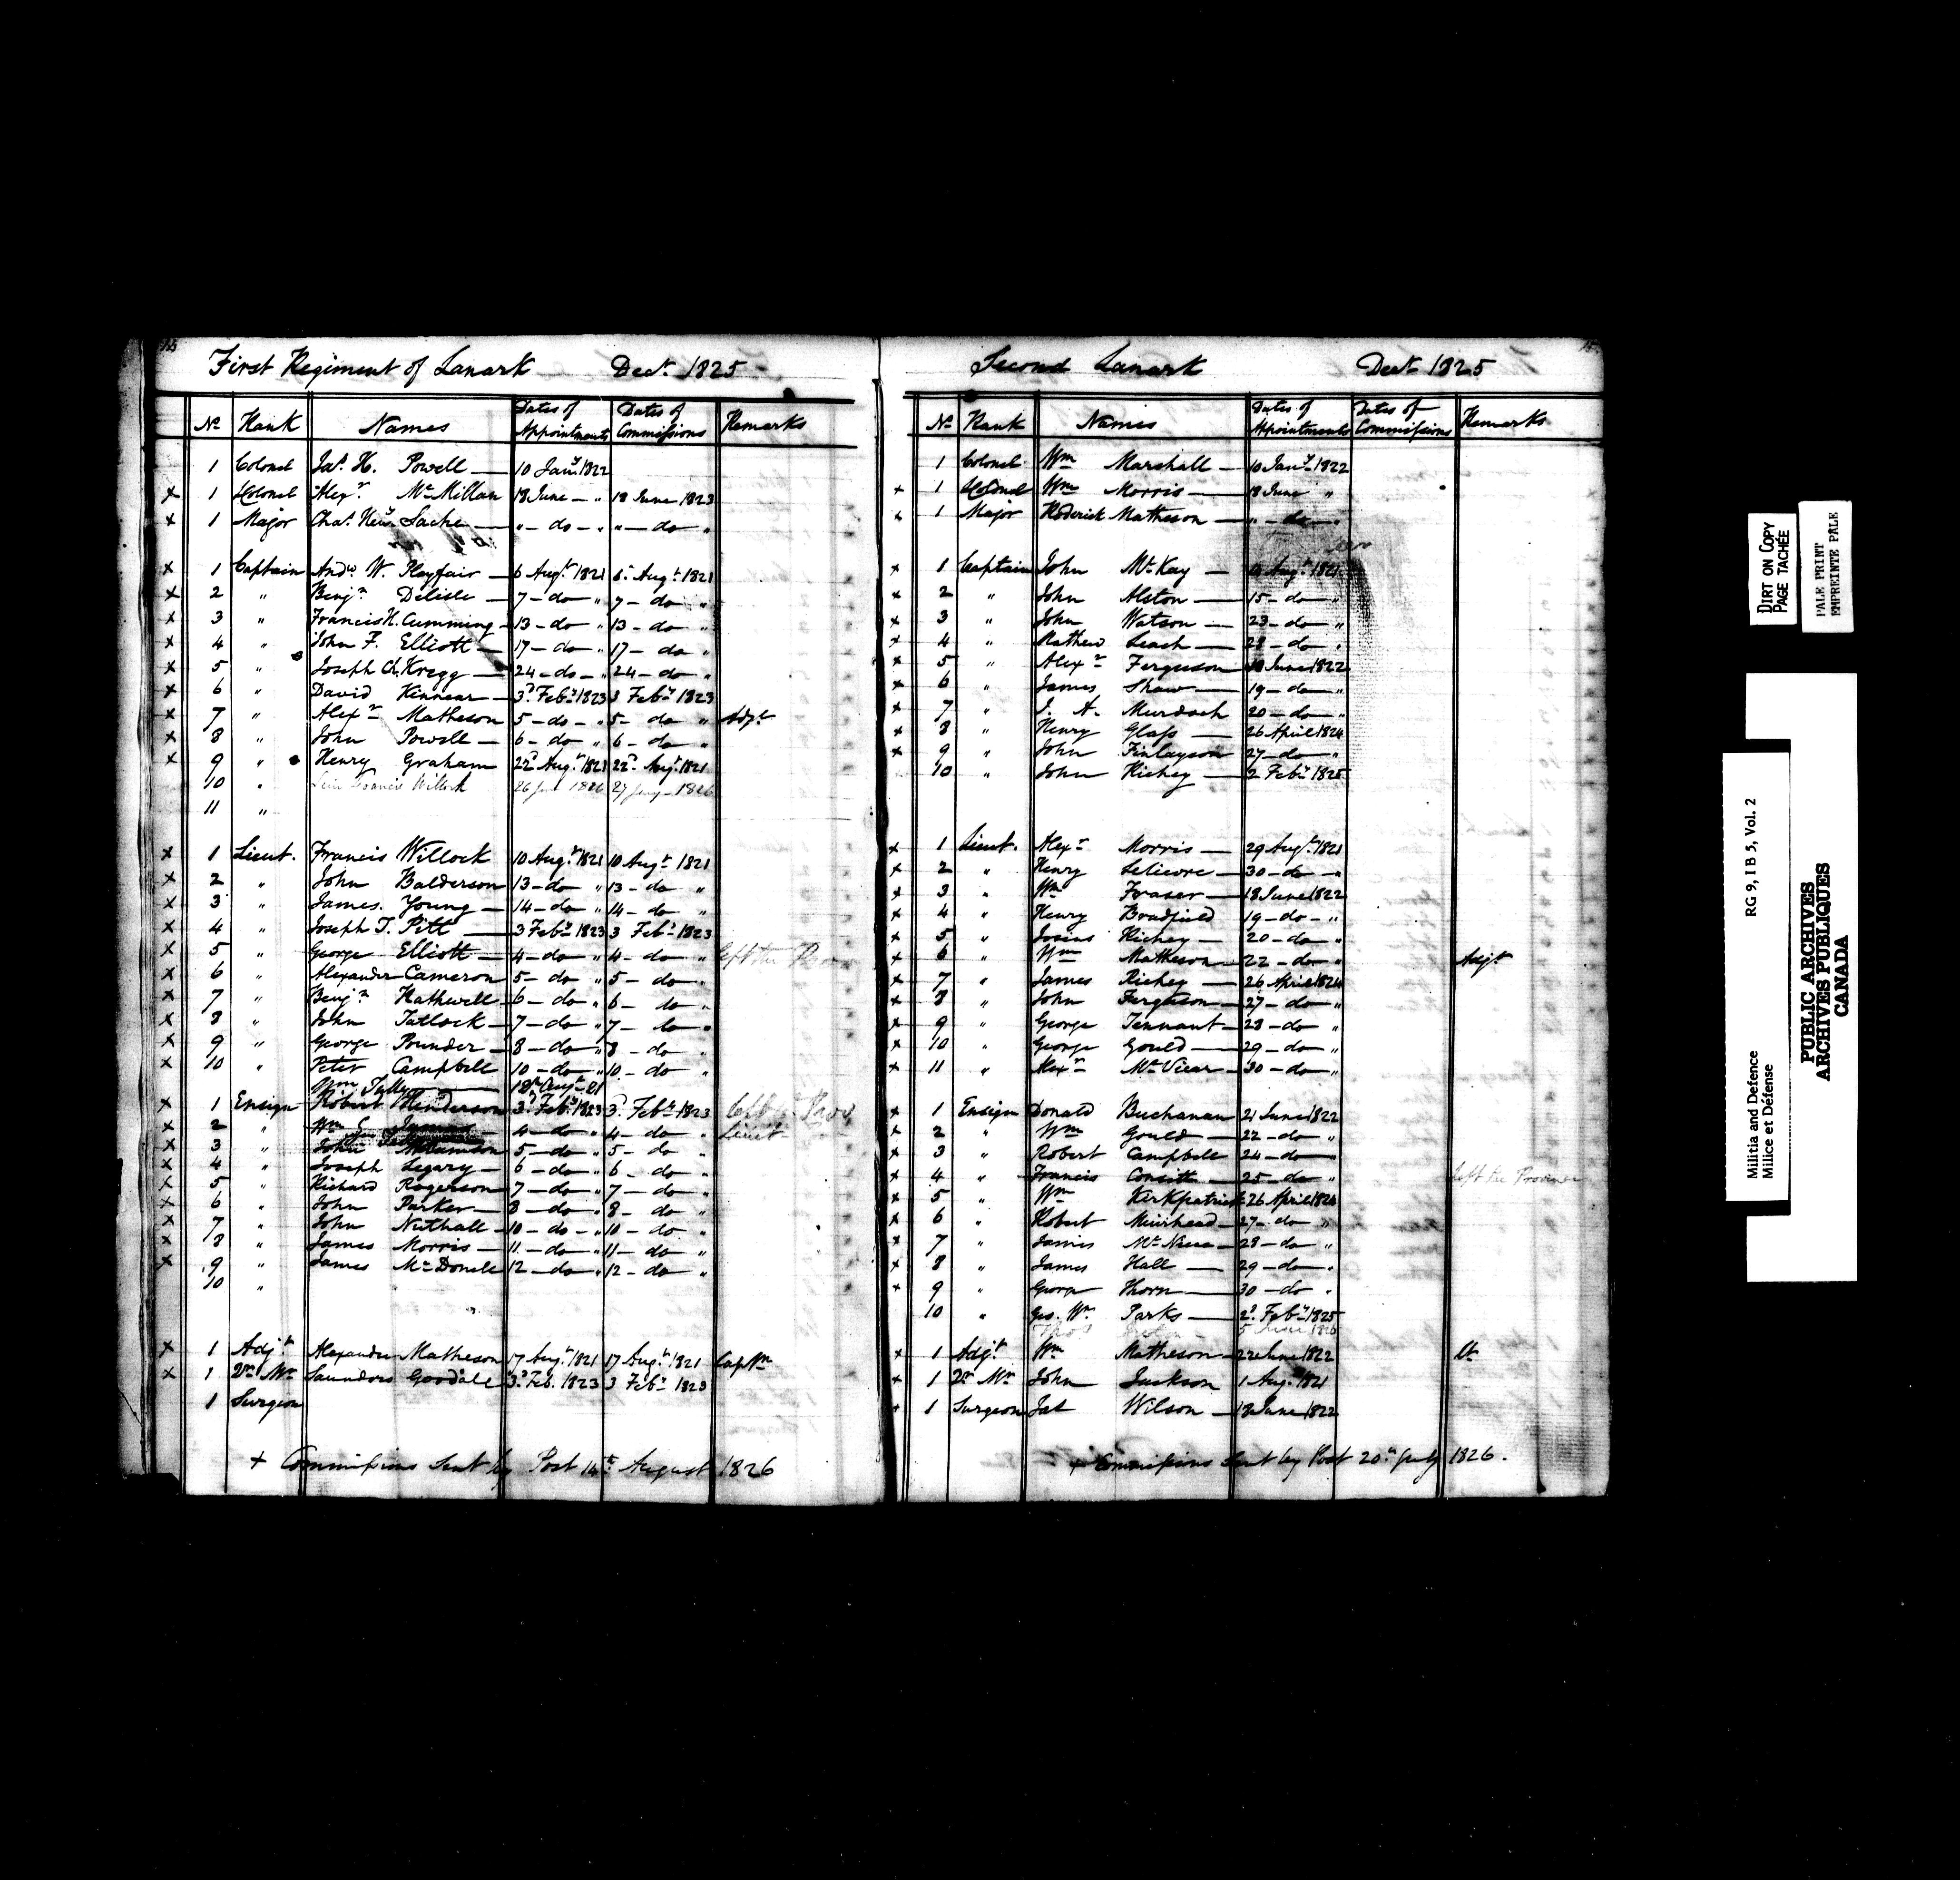 First Regiment of Lanark Decr. 1825
No. Rank Names Dates of Appointments Dates of Commissions Remarks
1 Colonel Jas. H. Powell — 10 Jany. 1822
x 1 Lt Colonel Alexr. McMillan 18 June — „ 18 June 1823
x 1 Major Chas. Sache — „ — do — „ „ — do „
x 1 Captain Andw. W. Playfair — 6 Augt. 1821 6 Augt. 1821
x 2 „ Benjn. Delisle — 7 — do „ 7 — do „
x 3 „ Francis H. Cumming — 13 — do „ 13 — do „
x 4 „ John F. Elliott — 17 — do „ 17 — do „
x 5 „ Joseph Ch. Kregg — 24 — do — „ 24 — do „
x 6 „ David Kinnear — 3d Feby. 1823 3 Feby. 1823
x 7 „ Alexr. Matheson 5 — do — „ 5 — do „ Adjt.
x 8 „ John Powell — 6 — do „ 6 — do „
x 9 „ Henry Graham 22d Augt. 1821 22d Augt. 1821
10 „ Francis Willock 26 1826 27 1826
11 „
x 1 Lieut. Francis Willock 10 Augt. 1821 10 Augt. 1821
x 2 „ John Balderson 13 — do „ 13 — do „
x 3 „ James Young — 14 — do „ 14 — do „
x 4 „ Joseph T. Pitt — 3 Feby. 1823 3 Feby. 1823
x 5 „ George Elliott — 4 — do „ 4 — do „ left the
x 6 „ Alexander Cameron 5 — do „ 5 — do „
x 7 „ Benjn. Rathwell — 6 — do „ 6 — do „
x 8 „ John Tatlock — 7 — do „ 7 — do „
x 9 „ George Pounder — 8 — do „ 8 — do „
x 10 „ Peter Campbell 10 — do „ 10 — do „
Wm. Tully — 18th Augt. 21
x 1 Ensign Robert Henderson 3d Feby. 1823 3d Feby. 1823 left the Prov
x 2 „ Wm. 4 — do „ 4 — do „ Lieut
x 3 „ John Adamson 5 — do „ 5 — do „
x 4 „ Joseph Legary — 6 — do „ 6 — do „
x 5 „ Richard Rogerson 7 — do „ 7 — do „
x 6 „ John Parker — 8 — do „ 8 — do „
x 7 „ John Nuthall — 10 — do — „ 10 — do „
x 8 „ James Morris — 11 — do — „ 11 — do „
x 9 „ James McDonell 12 — do „ 12 — do „
10 „
x 1 Adjt. Alexander Matheson 17 Augt. 1821 17 Augt. 1821 Captn
x 1 Qr. Mr. Saunders Goodale 3d Feb. 1823 3 Feby. 1823
1 Surgeon
+ Commissions Sent by Post 14th August 1826
Second Lanark Decr. 1825
No. Rank Names Dates of Appointments Dates of Commissions Remarks
1 Colonel Wm Marshall — 10 Jany. 1822
x 1 Lt Colonel Wm Morris — 18 June „
x 1 Major Roderick Matheson — „ — do — „
x 1 Captain John McKay — Augt. 1821
x 2 „ John Alston — 15 — do — „
x 3 „ John Watson — 23 — do „
x 4 „ Mathew Leach — 28 — do „
x 5 „ Alexr. Ferguson 18 June 1822
x 6 „ James Shaw — 19 — do — „
x 7 „ J. A. Murdoch 20 — do — „
x 8 „ Henry Glass — 26 April 1824
x 9 „ John Finlayson 27 — do — „
10 „ John Richey — 2 Feby. 1825
x 1 Lieut. Alexr. Morris — 29 Augt. 1821
x 2 „ Henry Lelievre — 30 — do — „
x 3 „ Wm Fraser — 18 June 1822
x 4 „ Henry Bradfield 19 — do — „
x 5 „ Josias Richey — 20 — do „
x 6 „ Wm Matheson — 22 — do „ Adjt
x 7 „ James Richey — 26 April 1824
x 8 „ John Ferguson — 27 — do „
x 9 „ George Tennant — 28 — do „
x 10 „ George Gould — 29 — do „
x 11 „ Alexr. McVicar — 30 — do „
x 1 Ensign Donald Buchanan 21 June 1822
x 2 „ Wm Gould — 22 — do „
x 3 „ Robert Campbell 24 — do — „
x 4 „ Francis Consitt — 25 — do „ left the Province
x 5 „ Wm Kirkpatrick 26 April 1824
x 6 „ Robert Muirhead — 27 — do „
x 7 „ James — 28 — do „
x 8 „ James Hall — 29 — do — „
x 9 „ George Thorn — 30 — do „
10 „ Geo. Wm Parks — 2d Feby. 1825
5 June 1826
x 1 Adjt. Wm Matheson — 22 June 1822 Lt
x 1 Qr. Mr. John Jackson 1 Augt. 1821
+ 1 Surgeon Jas Wilson — 18 June 1822
+ Commissions Sent by Post 20th July 1826.
DIRT ON COPY
PAGE TACHÉE
PALE PRINT
EMPREINTE PALE
Militia and Defence RG 9, I B 5, Vol. 2
Milice et Défense
PUBLIC ARCHIVES
ARCHIVES PUBLIQUES
CANADA